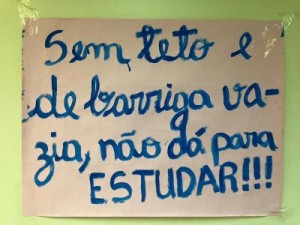 Sem teto e
de barriga va-
zia, não dá para
ESTUDAR!!!